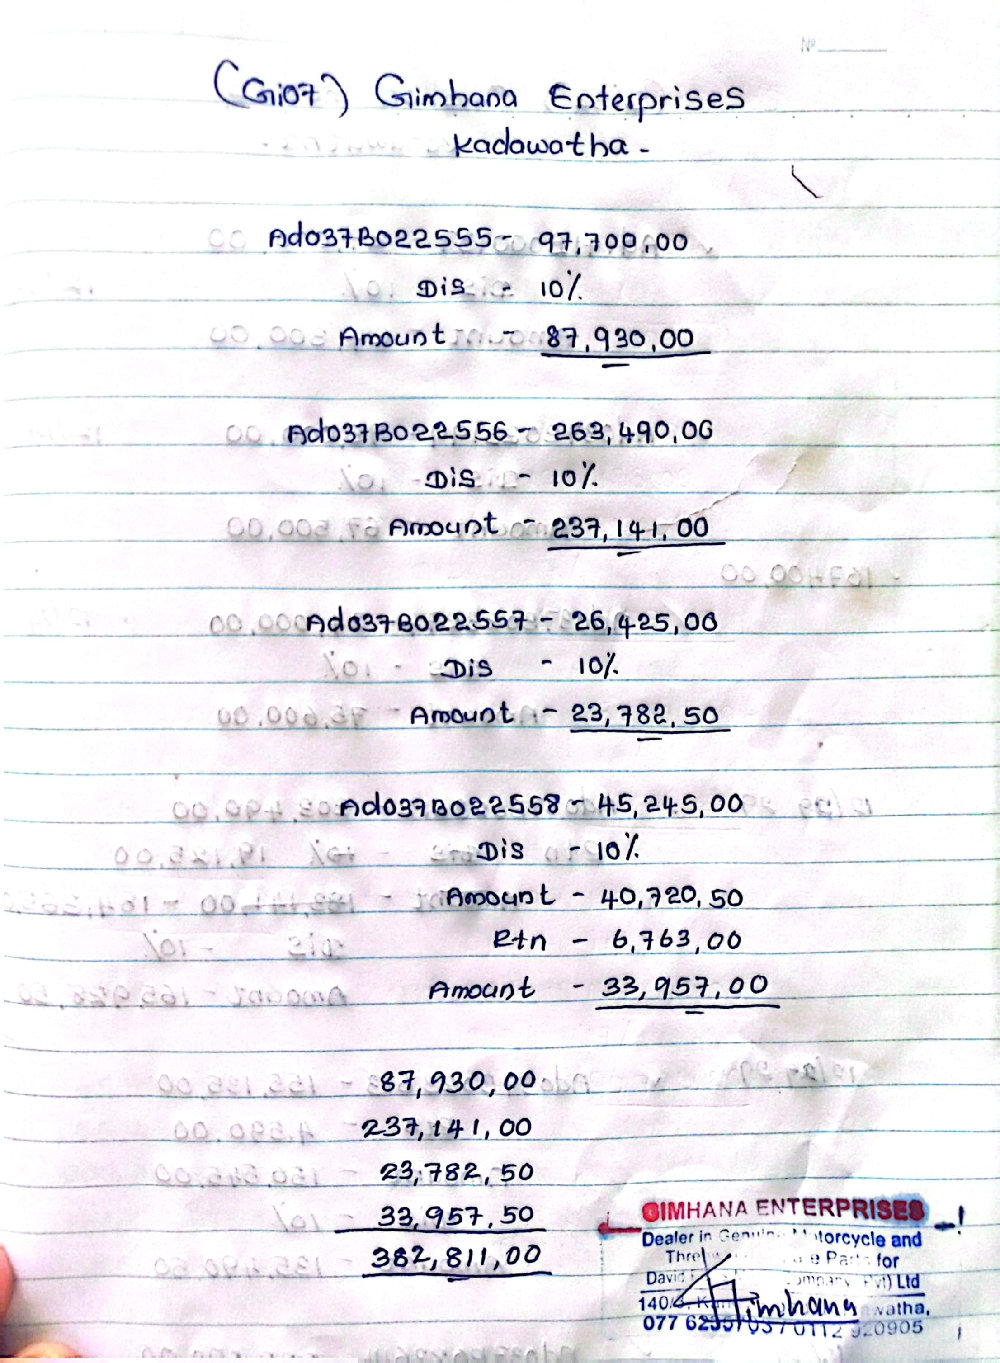 Nº
(Gi07) Gimhana Enterprises
Kadawatha -
Ad037B022555 - 97,700,00
Dis - 10%
Amount - 87,930,00
Ad037B022556 - 263,490,00
Dis - 10%
Amount - 237,141,00
Ad037B022557 - 26,425,00
Dis - 10%
Amount - 23,782,50
Ad037B022558 - 45,245,00
Dis - 10%
Amount - 40,720,50
Rtn - 6,763,00
Amount - 33,957,00
87,930,00
237,141,00
23,782,50
33,957,50
382,811,00
GIMHANA ENTERPRISES
Dealer in Genuine Motorcycle and
Parts for
David Company (Pvt) Ltd
Gimhana
0112 920905